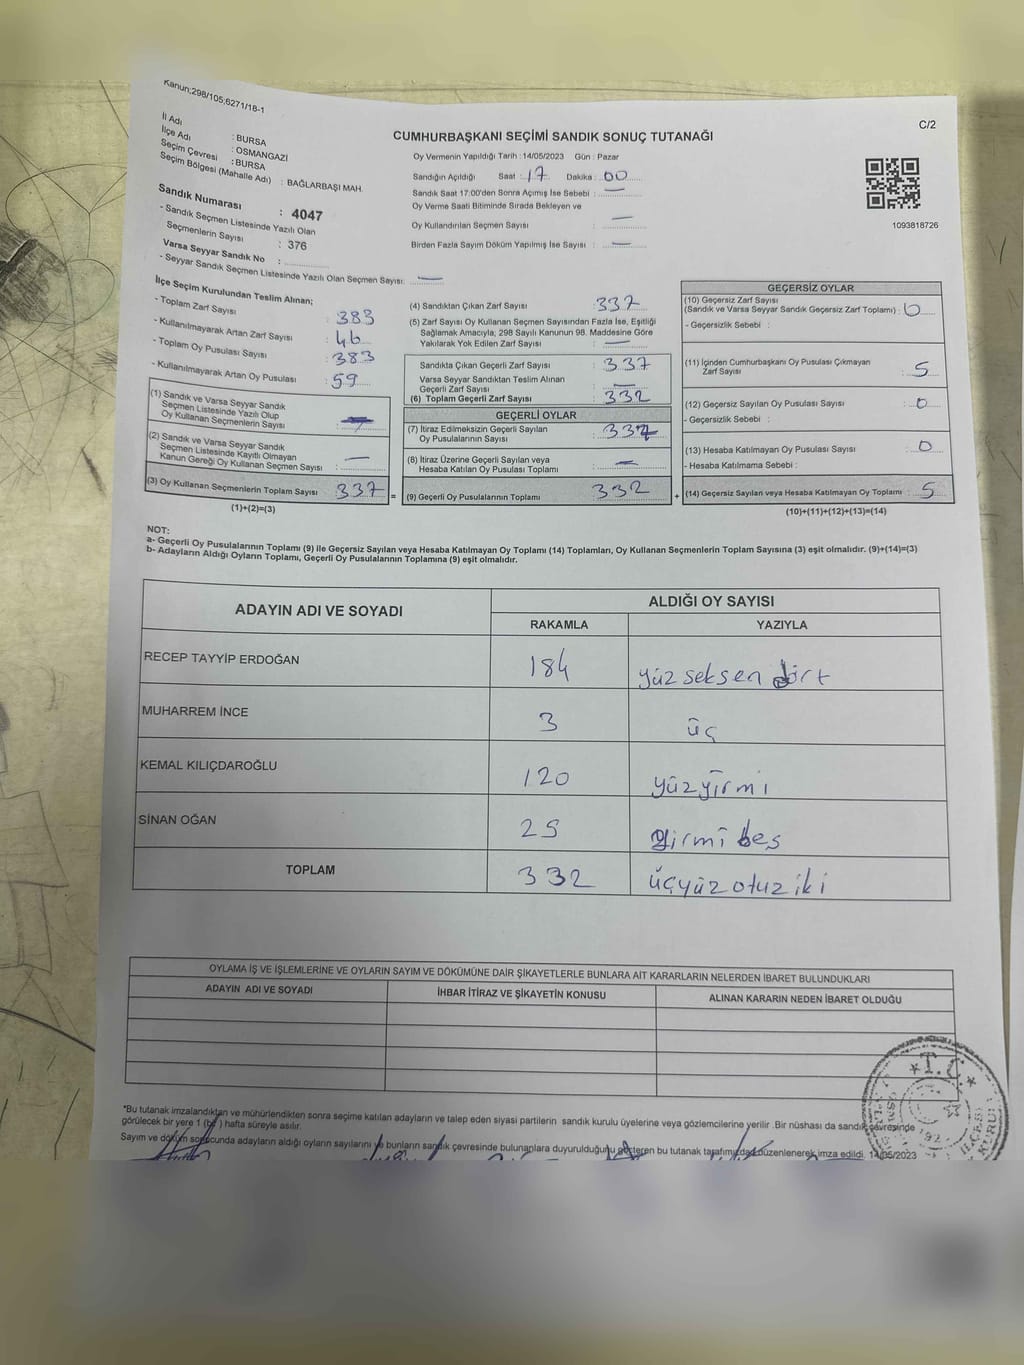 Kanun:298/105;6271/18-1
C/2
İl Adı : BURSA
İlçe Adı : OSMANGAZİ
Seçim Çevresi : BURSA
Seçim Bölgesi (Mahalle Adı) : BAĞLARBAŞI MAH.
Sandık Numarası : 4047
- Sandık Seçmen Listesinde Yazılı Olan
Seçmenlerin Sayısı : 376
Varsa Seyyar Sandık No :
- Seyyar Sandık Seçmen Listesinde Yazılı Olan Seçmen Sayısı: —
CUMHURBAŞKANI SEÇİMİ SANDIK SONUÇ TUTANAĞI
Oy Vermenin Yapıldığı Tarih : 14/05/2023 Gün : Pazar
Sandığın Açıldığı Saat : 17 Dakika : 00
Sandık Saat 17:00'den Sonra Açımış İse Sebebi : —
Oy Verme Saati Bitiminde Sırada Bekleyen ve
Oy Kullandırılan Seçmen Sayısı : —
Birden Fazla Sayım Döküm Yapılmış İse Sayısı : —
1093818726
İlçe Seçim Kurulundan Teslim Alınan;
- Toplam Zarf Sayısı : 383
- Kullanılmayarak Artan Zarf Sayısı : 46
- Toplam Oy Pusulası Sayısı : 383
- Kullanılmayarak Artan Oy Pusulası : 59
(1) Sandık ve Varsa Seyyar Sandık
Seçmen Listesinde Yazılı Olup
Oy Kullanan Seçmenlerin Sayısı :
(2) Sandık ve Varsa Seyyar Sandık
Seçmen Listesinde Kayıtlı Olmayan
Kanun Gereği Oy Kullanan Seçmen Sayısı : —
(3) Oy Kullanan Seçmenlerin Toplam Sayısı : 337 =
(1)+(2)=(3)
(4) Sandıktan Çıkan Zarf Sayısı : 337
(5) Zarf Sayısı Oy Kullanan Seçmen Sayısından Fazla İse, Eşitliği
Sağlamak Amacıyla, 298 Sayılı Kanunun 98. Maddesine Göre
Yakılarak Yok Edilen Zarf Sayısı : —
Sandıkta Çıkan Geçerli Zarf Sayısı : 337
Varsa Seyyar Sandıktan Teslim Alınan
Geçerli Zarf Sayısı : —
(6) Toplam Geçerli Zarf Sayısı : 332
GEÇERLİ OYLAR
(7) İtiraz Edilmeksizin Geçerli Sayılan
Oy Pusulalarının Sayısı :
(8) İtiraz Üzerine Geçerli Sayılan veya
Hesaba Katılan Oy Pusulası Toplamı : —
(9) Geçerli Oy Pusulalarının Toplamı : 332 +
GEÇERSİZ OYLAR
(10) Geçersiz Zarf Sayısı
(Sandık ve Varsa Seyyar Sandık Geçersiz Zarf Toplamı) : 0
- Geçersizlik Sebebi :
(11) İçinden Cumhurbaşkanı Oy Pusulası Çıkmayan
Zarf Sayısı : 5
(12) Geçersiz Sayılan Oy Pusulası Sayısı : 0
- Geçersizlik Sebebi :
(13) Hesaba Katılmayan Oy Pusulası Sayısı : 0
- Hesaba Katılmama Sebebi :
(14) Geçersiz Sayılan veya Hesaba Katılmayan Oy Toplamı : 5
(10)+(11)+(12)+(13)=(14)
NOT:
a- Geçerli Oy Pusulalarının Toplamı (9) ile Geçersiz Sayılan veya Hesaba Katılmayan Oy Toplamı (14) Toplamları, Oy Kullanan Seçmenlerin Toplam Sayısına (3) eşit olmalıdır. (9)+(14)=(3)
b- Adayların Aldığı Oyların Toplamı, Geçerli Oy Pusulalarının Toplamına (9) eşit olmalıdır.
ADAYIN ADI VE SOYADI ALDIĞI OY SAYISI
RAKAMLA YAZIYLA
RECEP TAYYİP ERDOĞAN 184 yüz seksen dört
MUHARREM İNCE 3 üç
KEMAL KILIÇDAROĞLU 120 yüzyirmi
SİNAN OĞAN 25 yirmi beş
TOPLAM 332 üçyüz otuz iki
OYLAMA İŞ VE İŞLEMLERİNE VE OYLARIN SAYIM VE DÖKÜMÜNE DAİR ŞİKAYETLERLE BUNLARA AİT KARARLARIN NELERDEN İBARET BULUNDUKLARI
ADAYIN ADI VE SOYADI İHBAR İTİRAZ VE ŞİKAYETİN KONUSU ALINAN KARARIN NEDEN İBARET OLDUĞU
*Bu tutanak imzalandıktan ve mühürlendikten sonra seçime katılan adayların ve talep eden siyasi partilerin sandık kurulu üyelerine veya gözlemcilerine verilir .Bir nüshası da sandık çevresinde
görülecek bir yere 1 (bir) hafta süreyle asılır.
Sayım ve döküm sonucunda adayların aldığı oyların sayılarını ve bunların sandık çevresinde bulunanlara duyurulduğunu gösteren bu tutanak tarafımızdan düzenlenerek imza edildi. 14/05/2023
★T.C.★